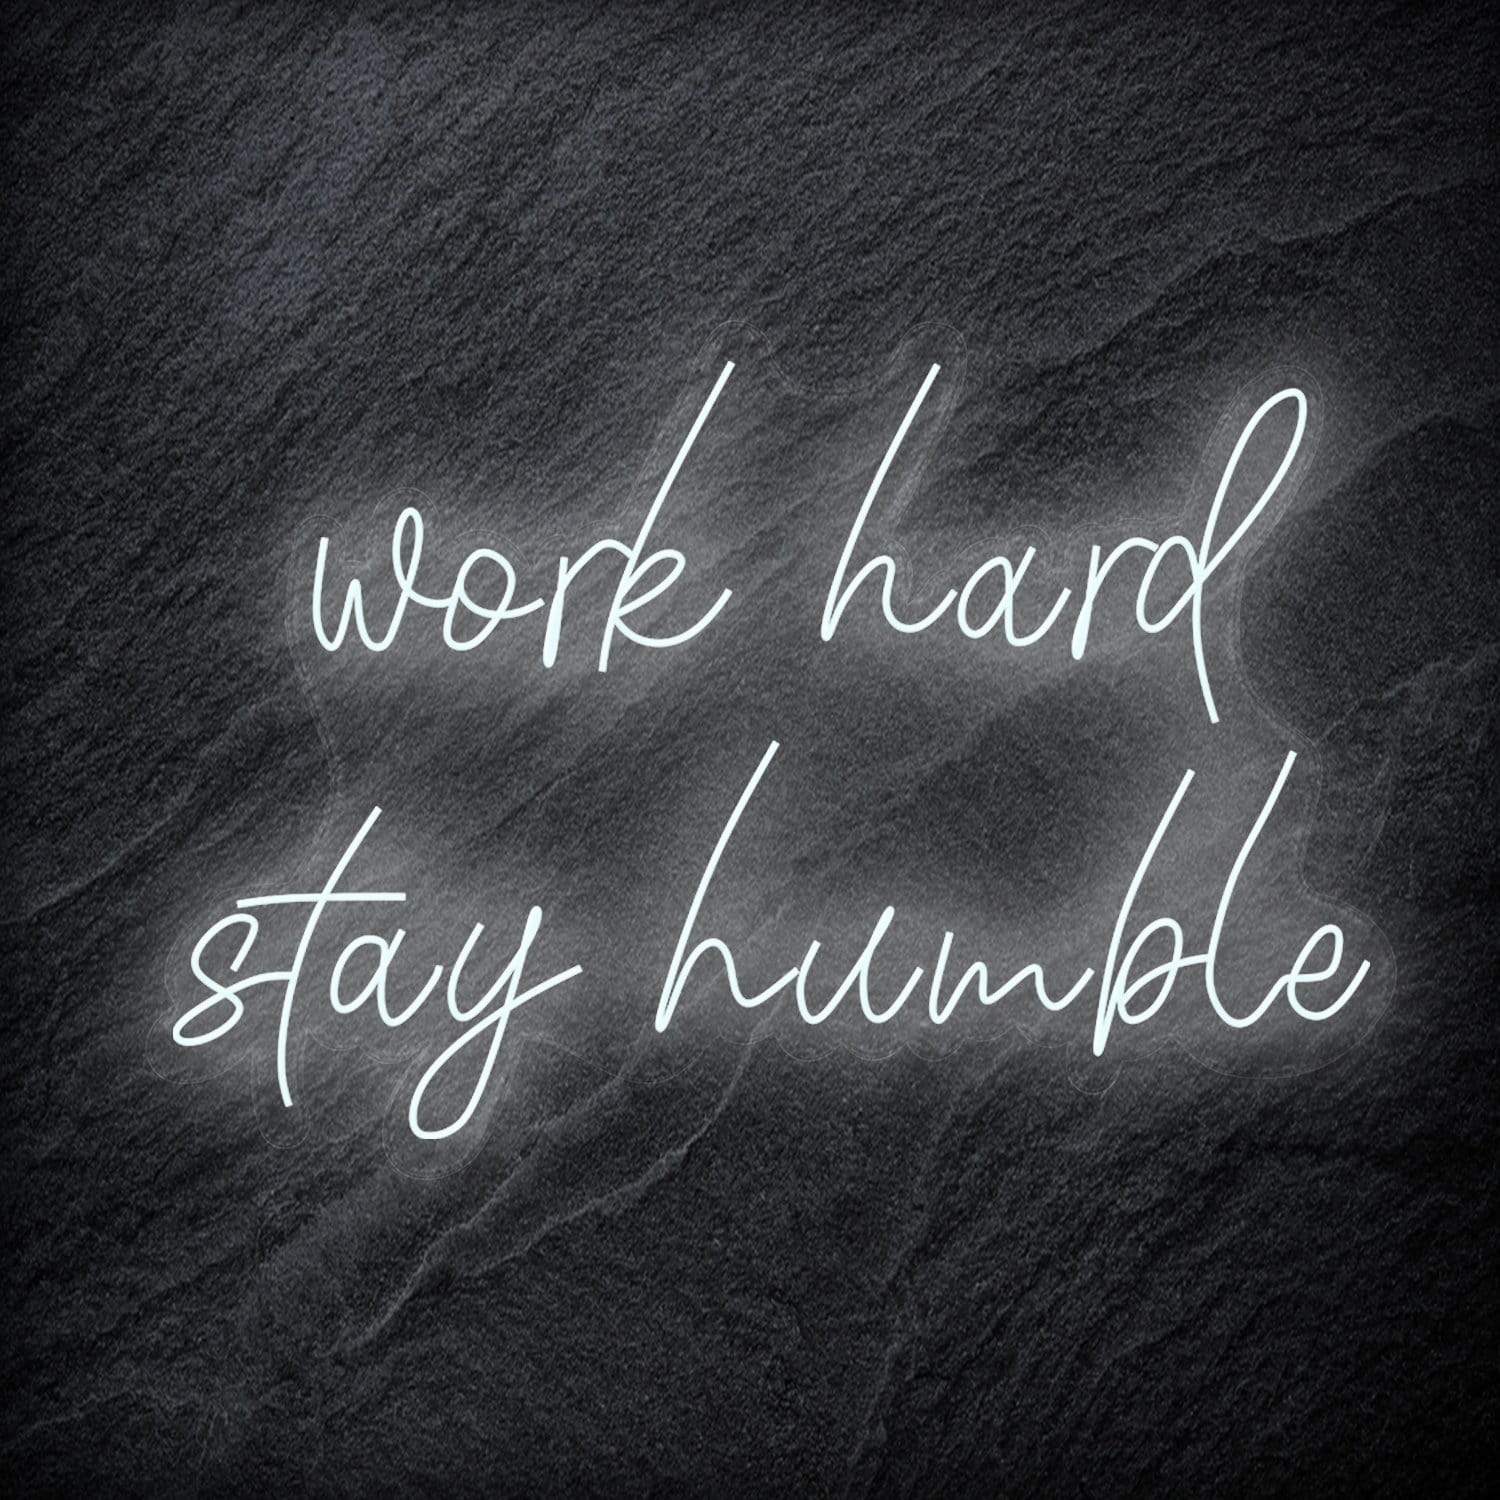 work hard
stay humble